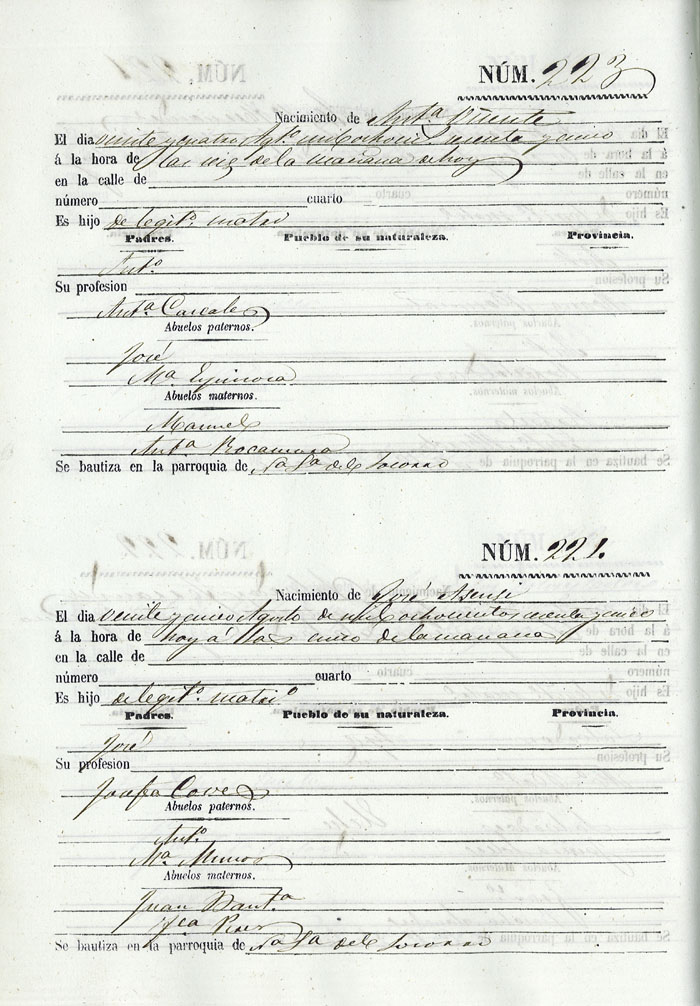 NÚM. 223
Nacimiento de Antª Vicente
El dia veinte y cuatro Agtº mil ochoci. y cinco
á la hora de las diez de la mañana de hoy
en la calle de
número cuarto
Es hijo de legitº matri
Padres. Pueblo de su naturaleza. Provincia.
Antº
Su profesion
Antª Cascales
Abuelos paternos.
José
Mª Espinosa
Abuelos maternos.
Manuel
Antª Rocamora
Se bautiza en la parroquia de Nª Sª del Socorro
NÚM. 221.
Nacimiento de José Asensi
El dia veinte y cinco Agosto de mil ochocientos y cinco
á la hora de hoy á las cinco de la mañana
en la calle de
número cuarto
Es hijo de legitº matriº
Padres. Pueblo de su naturaleza. Provincia.
José
Su profesion
Josefa Cove
Abuelos paternos.
Antº
Mª Munos
Abuelos maternos.
Juan Bautª
Se bautiza en la parroquia de Nª Sª del Socorro